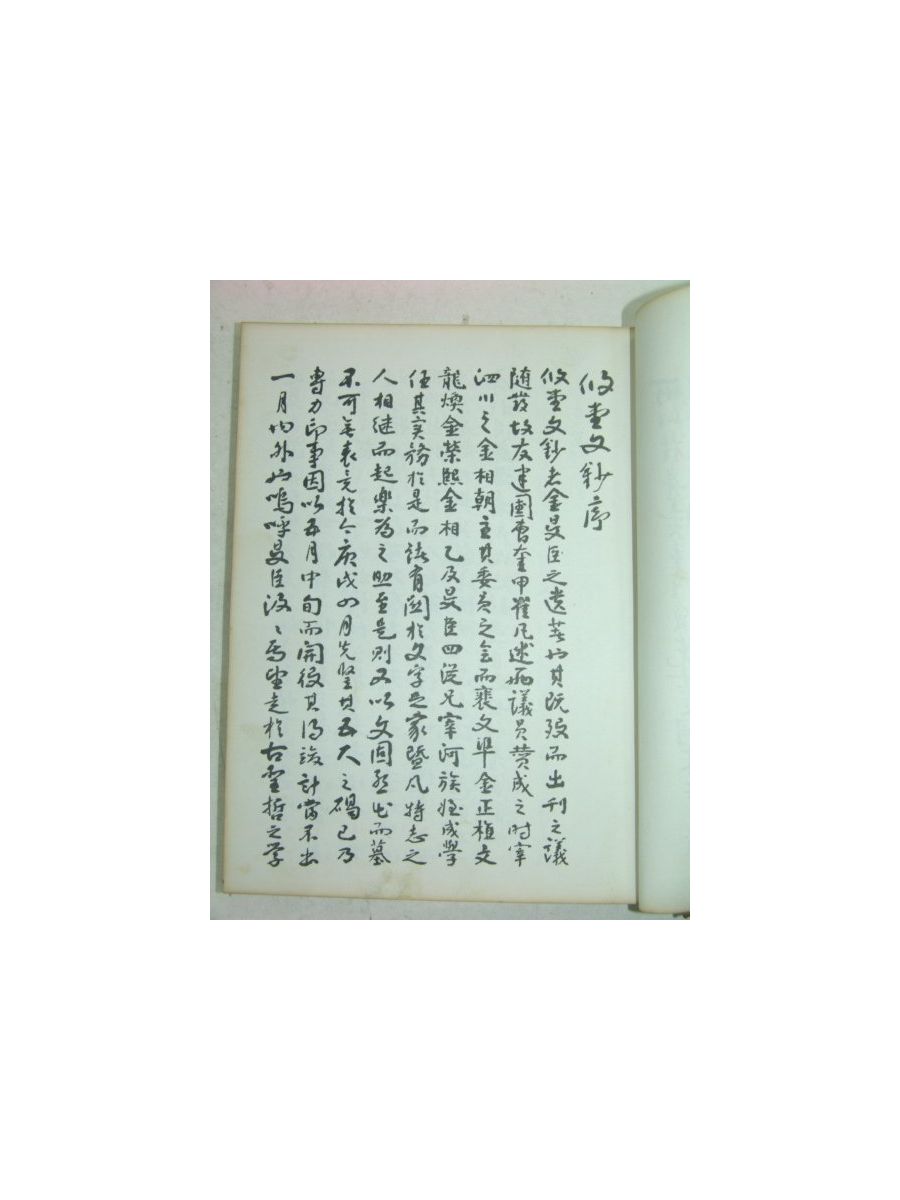 攸堂文鈔序
攸堂文鈔者金旻臣之遺著也其既歿而出刊之議
隨發故友建國曹奎甲崔凡述兩議員贊成之時宰
泗川之金相朝主其委員之会而裵文準金正植文
龍煥金榮熙金相乙及旻臣四從兄宰河族姪成學
任其實務於是而諸有関於文字之家曁凡特志之
人相継而起樂為之助至是則又以文固然也而墓
不可無表竟於今庚戌四月先竪其五尺之碣已乃
專力印事因以五月中旬而開役其得竣計當不出
一月内外也嗚呼旻臣汲汲焉望走於古聖哲之学